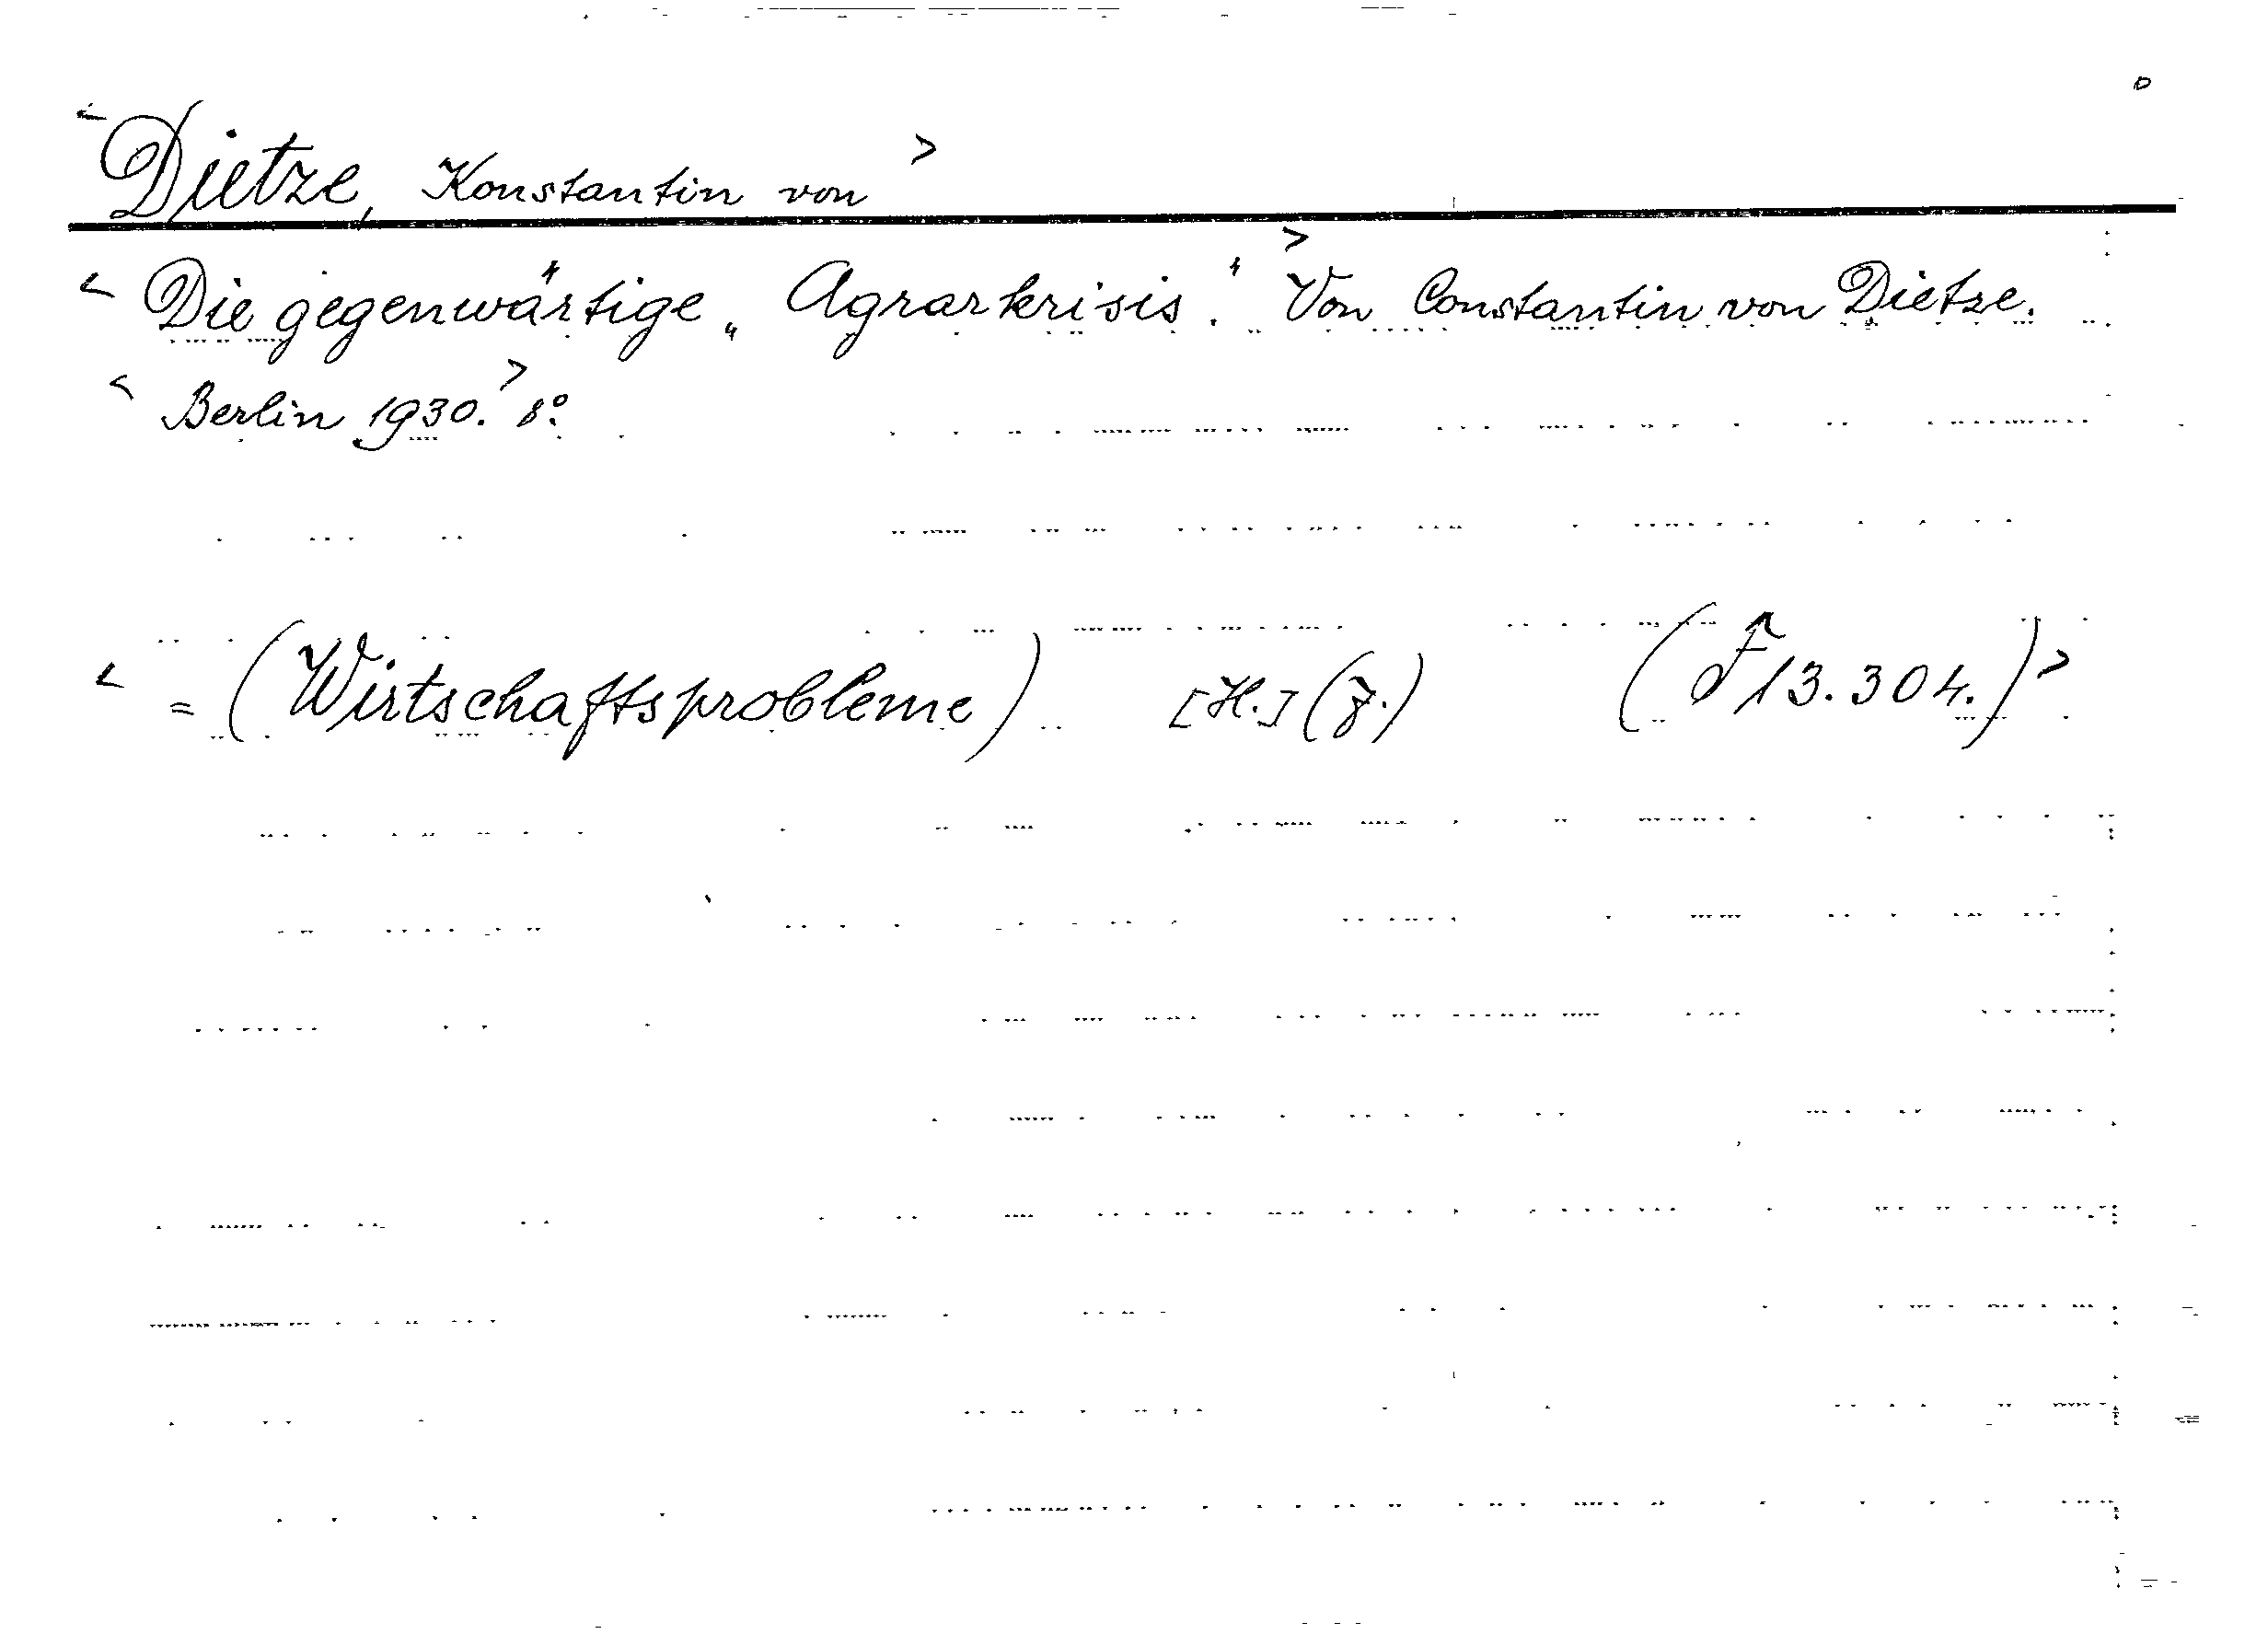 <Dietze, Konstantin von>
<Die gegenwärtige „Agrarkrisis.“> Von Constantin von Dietze.
<Berlin 1930.> 8°.
<= (Wirtschaftsprobleme) [H.] (7.) (F 13.304.)>